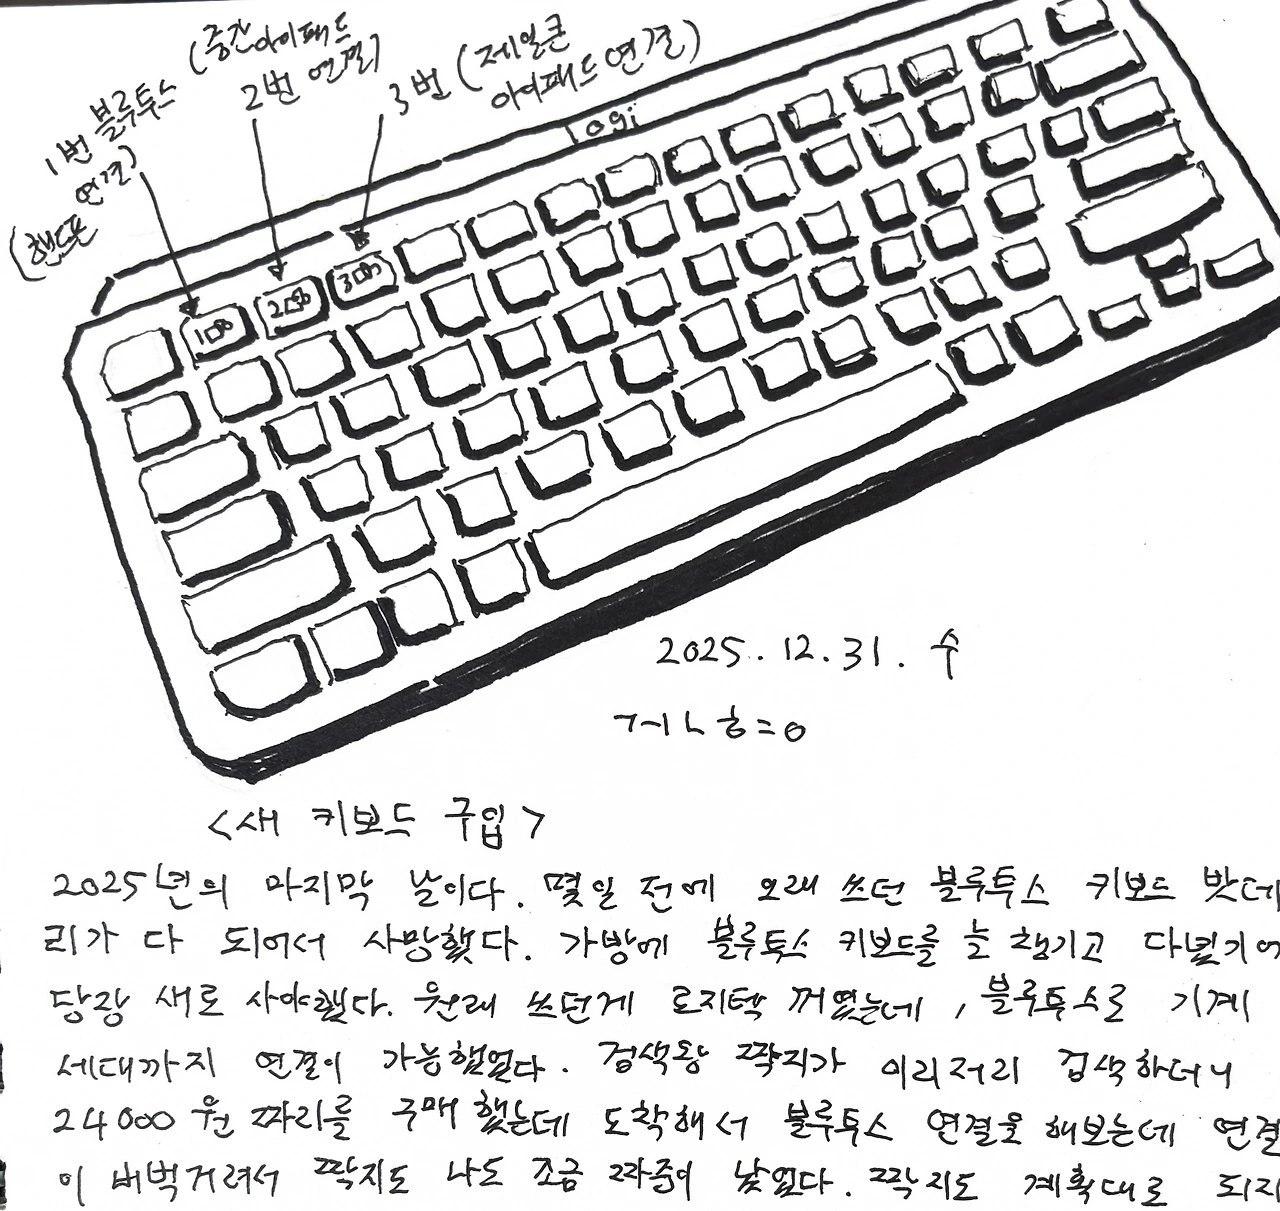 (중간아이패드
2번 연결)
3번 (제일큰
아이패드 연결)
1번 블루투스
연결)
(핸드폰
logi
1
2
3
2025. 12. 31. 수
<새 키보드 구입>
2025년의 마지막 날이다. 몇일 전에 오래 쓰던 블루투스 키보드 밧데
리가 다 되어서 사망했다. 가방에 블루투스 키보드를 늘 챙기고 다녔기에
당장 새로 사야했다. 원래 쓰던게 로지텍 꺼였는데, 블루투스로 기계
세대까지 연결이 가능했었다. 검색왕 짝지가 이리저리 검색하더니
24000원 짜리를 구매했는데 도착해서 블루투스 연결을 해보는데 연결
이 버벅거려서 짝지도 나도 조금 짜증이 났었다. 짝지도 계획대로 되지